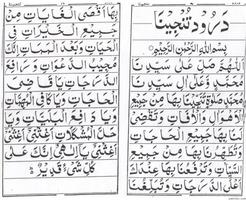 درود تنجينا
بِسْمِ اللهِ الرَّحْمٰنِ الرَّحِيْمِ
اَللّٰهُمَّ صَلِّ عَلٰى سَيِّدِنَا
مُحَمَّدٍ وَّعَلٰى اٰلِ سَيِّدِنَا
مُحَمَّدٍ صَلٰوةً تُنَجِّيْنَا بِهَا مِنْ جَمِيْعِ
الْاَهْوَالِ وَالْاٰفَاتِ وَتَقْضِىْ
لَنَا بِهَا جَمِيْعَ الْحَاجَاتِ
وَتُطَهِّرُنَا بِهَا مِنْ جَمِيْعِ
السَّيِّاٰتِ وَتَرْفَعُنَا بِهَا عِنْدَكَ
اَعْلَى الدَّرَجَاتِ وَتُبَلِّغُنَا
بِهَا اَقْصَى الْغَايَاتِ مِنْ
جَمِيْعِ الْخَيْرَاتِ فِى
الْحَيٰوةِ وَبَعْدَ الْمَمَاتِ اِنَّكَ
الدَّرَجَاتِ يَا قَاضِىَ
الْحَاجَاتِ وَيَا كَافِىَ الْمُهِمَّاتِ
وَيَا دَافِعَ الْبَلِيَّاتِ وَيَا
حَلَّ الْمُشْكِلَاتِ اَغِثْنِىْ
اَغِثْنِىْ يَا اِلٰهِىْ اِنَّكَ عَلٰى
كُلِّ شَىْءٍ قَدِيْرٌ